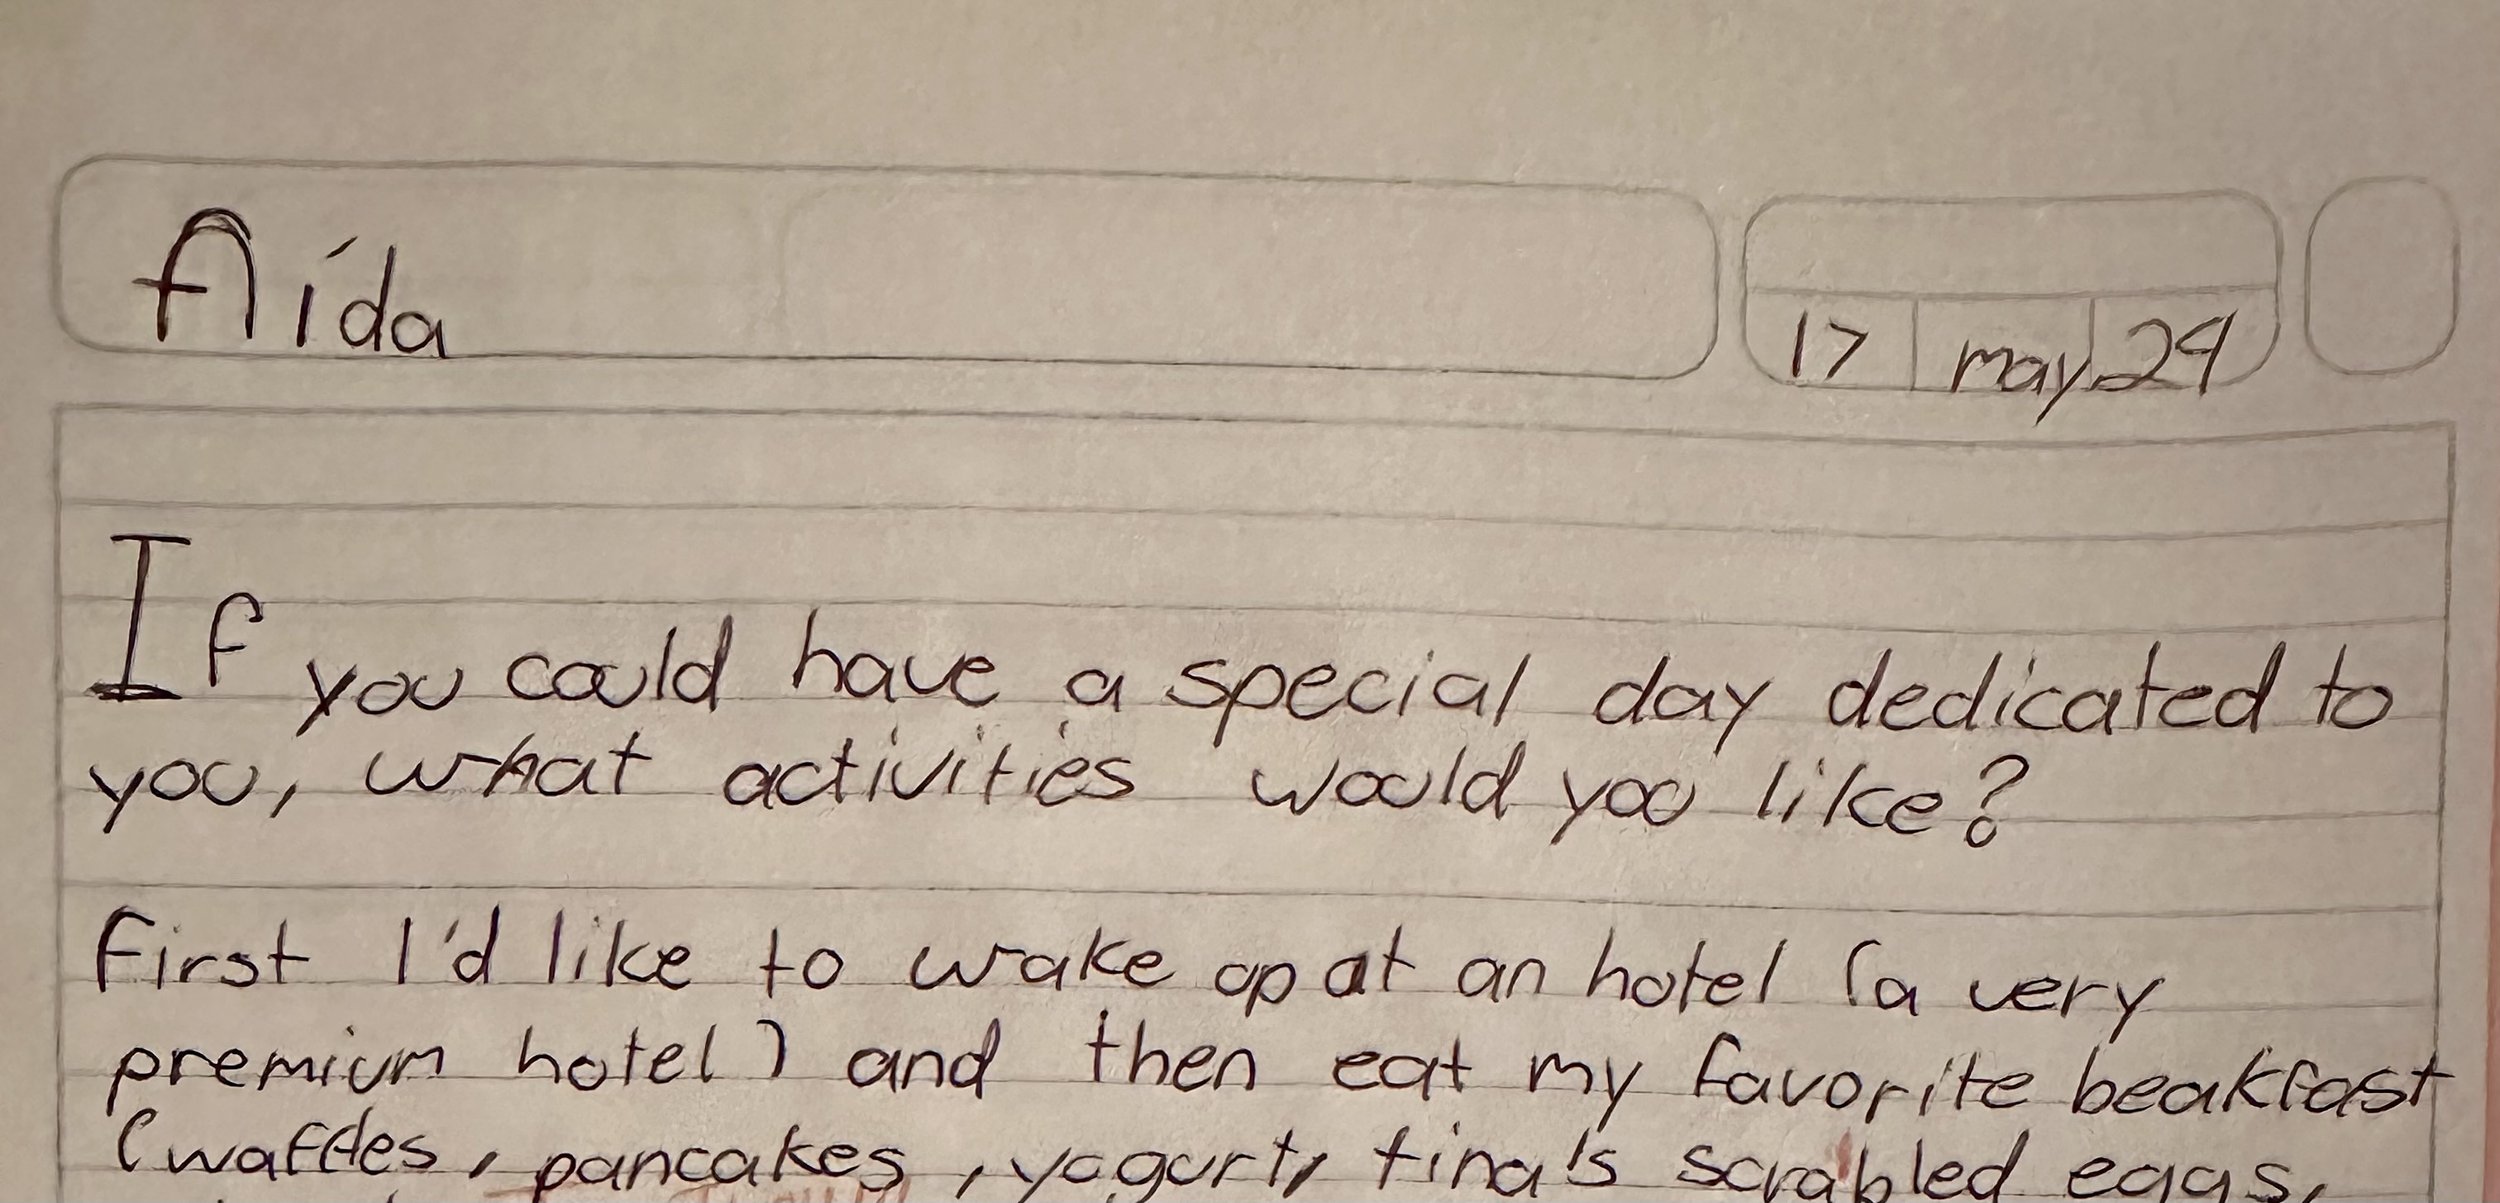 Aída
17 may 24
If you could have a special day dedicated to
you, what activities would you like?
First I'd like to wake up at an hotel (a very
premium hotel) and then eat my favorite beakfast
(waffles, pancakes, yogurt, tina's scrabled eggs,